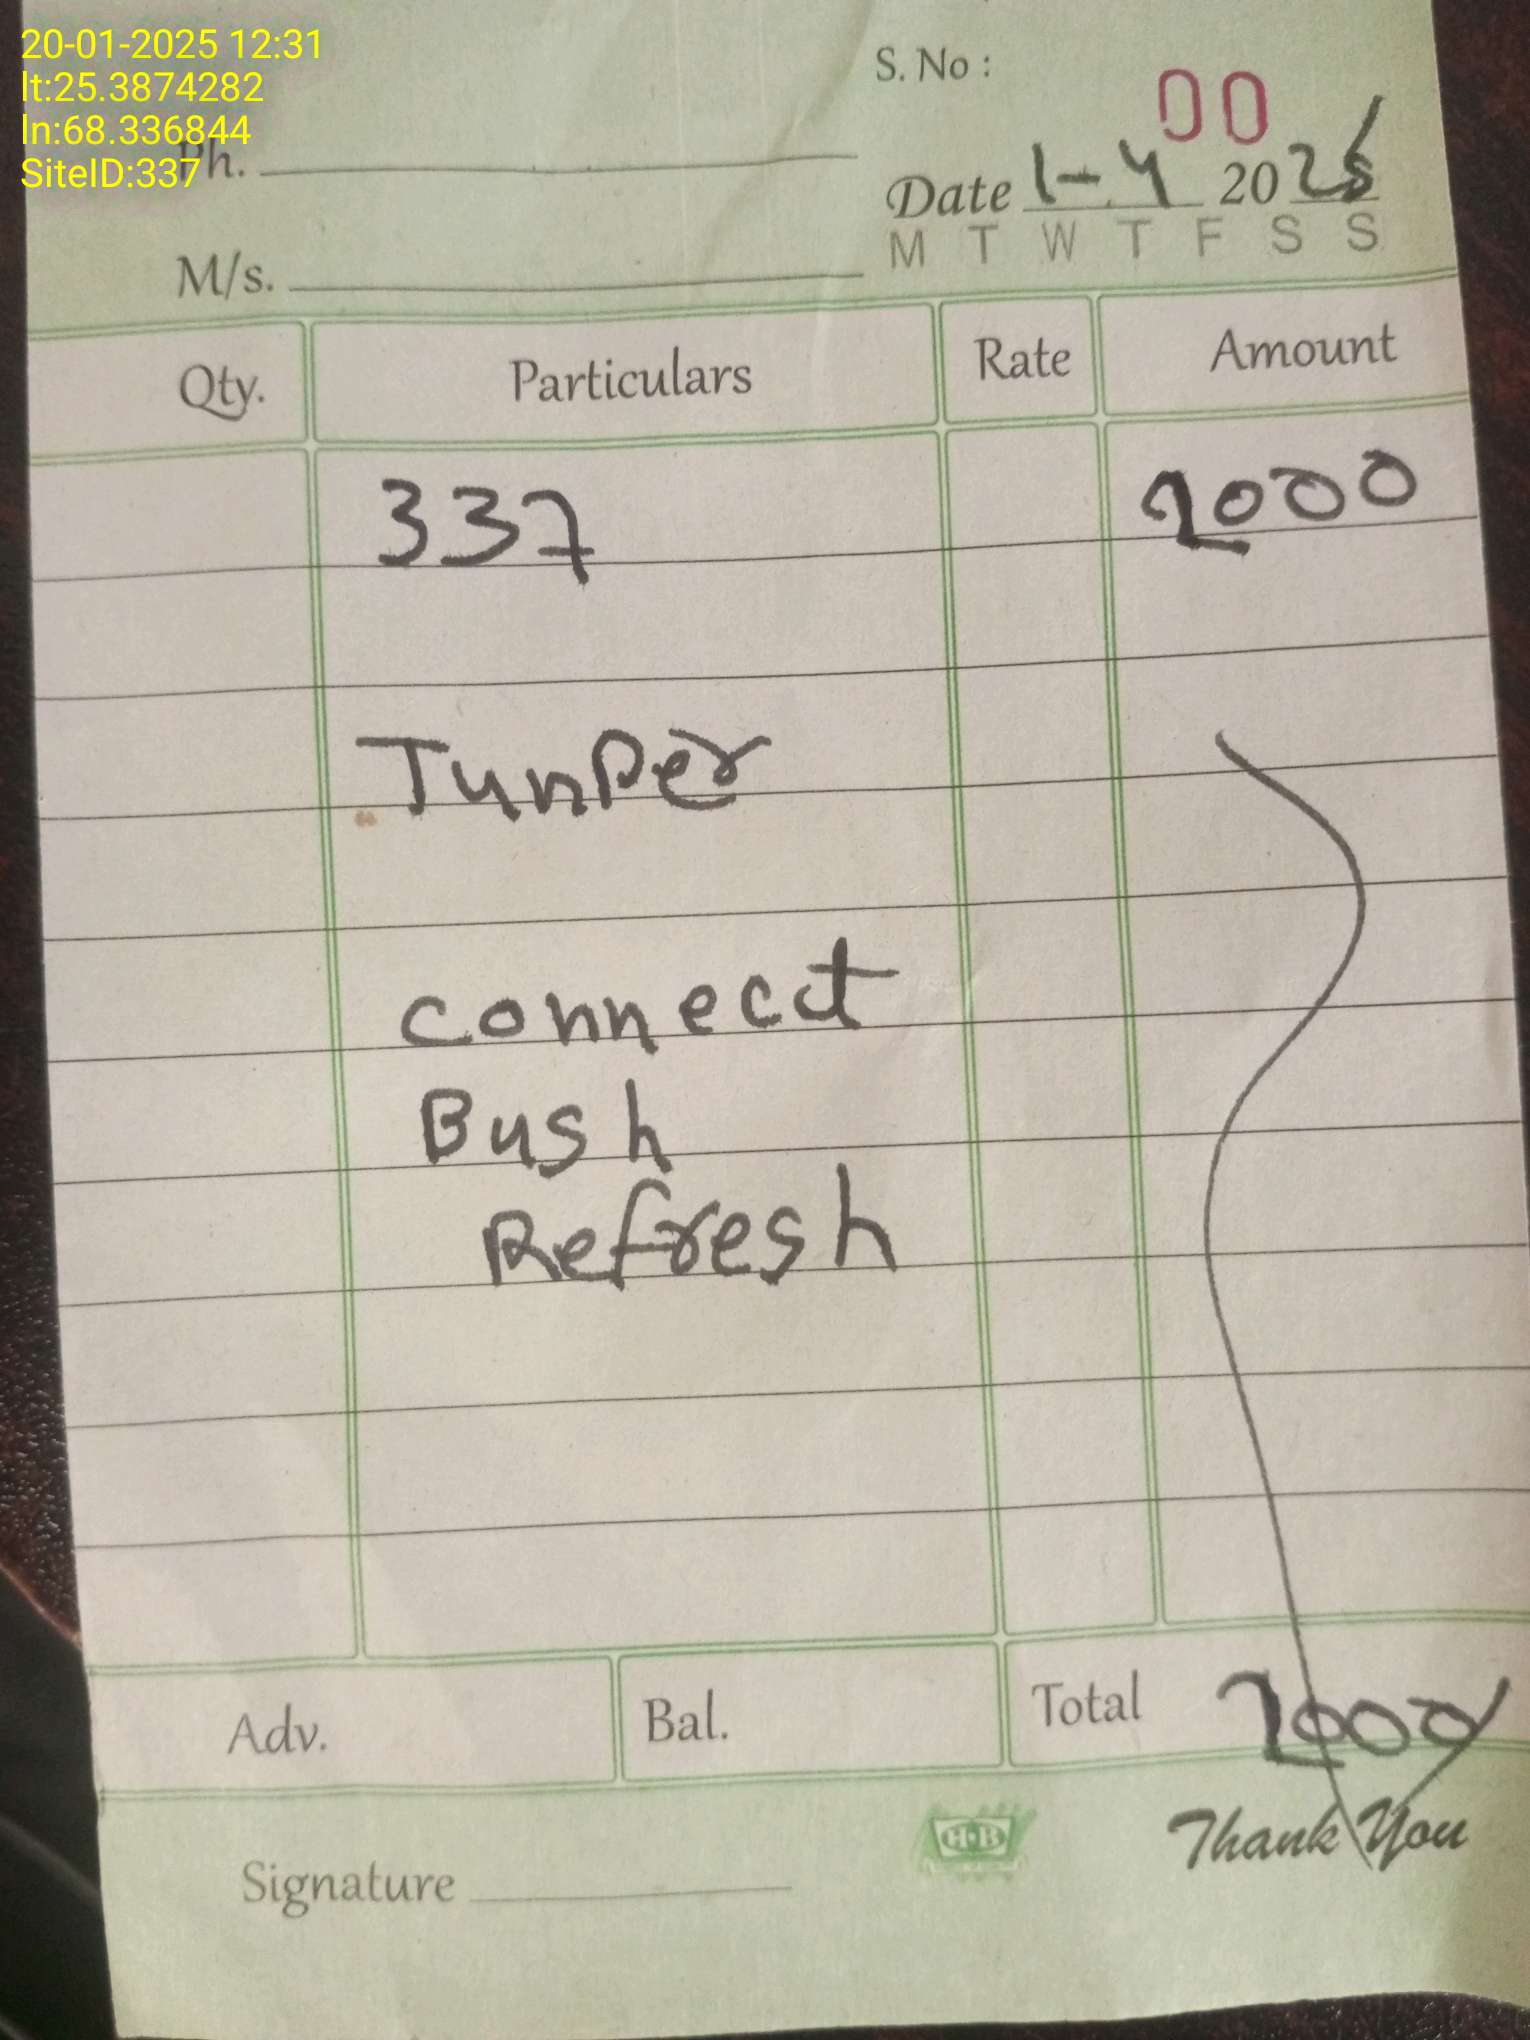 20-01-2025 12:31
lt:25.3874282
ln:68.336844
SiteID:337
S. No :
00
Ph.
Date 1-4 2025
M T W T F S S
M/s.
Qty. Particulars Rate Amount
337 2000
Tunper
connect
Bush
Refresh
Adv. Bal. Total 2000
H.B
Thank You
Signature